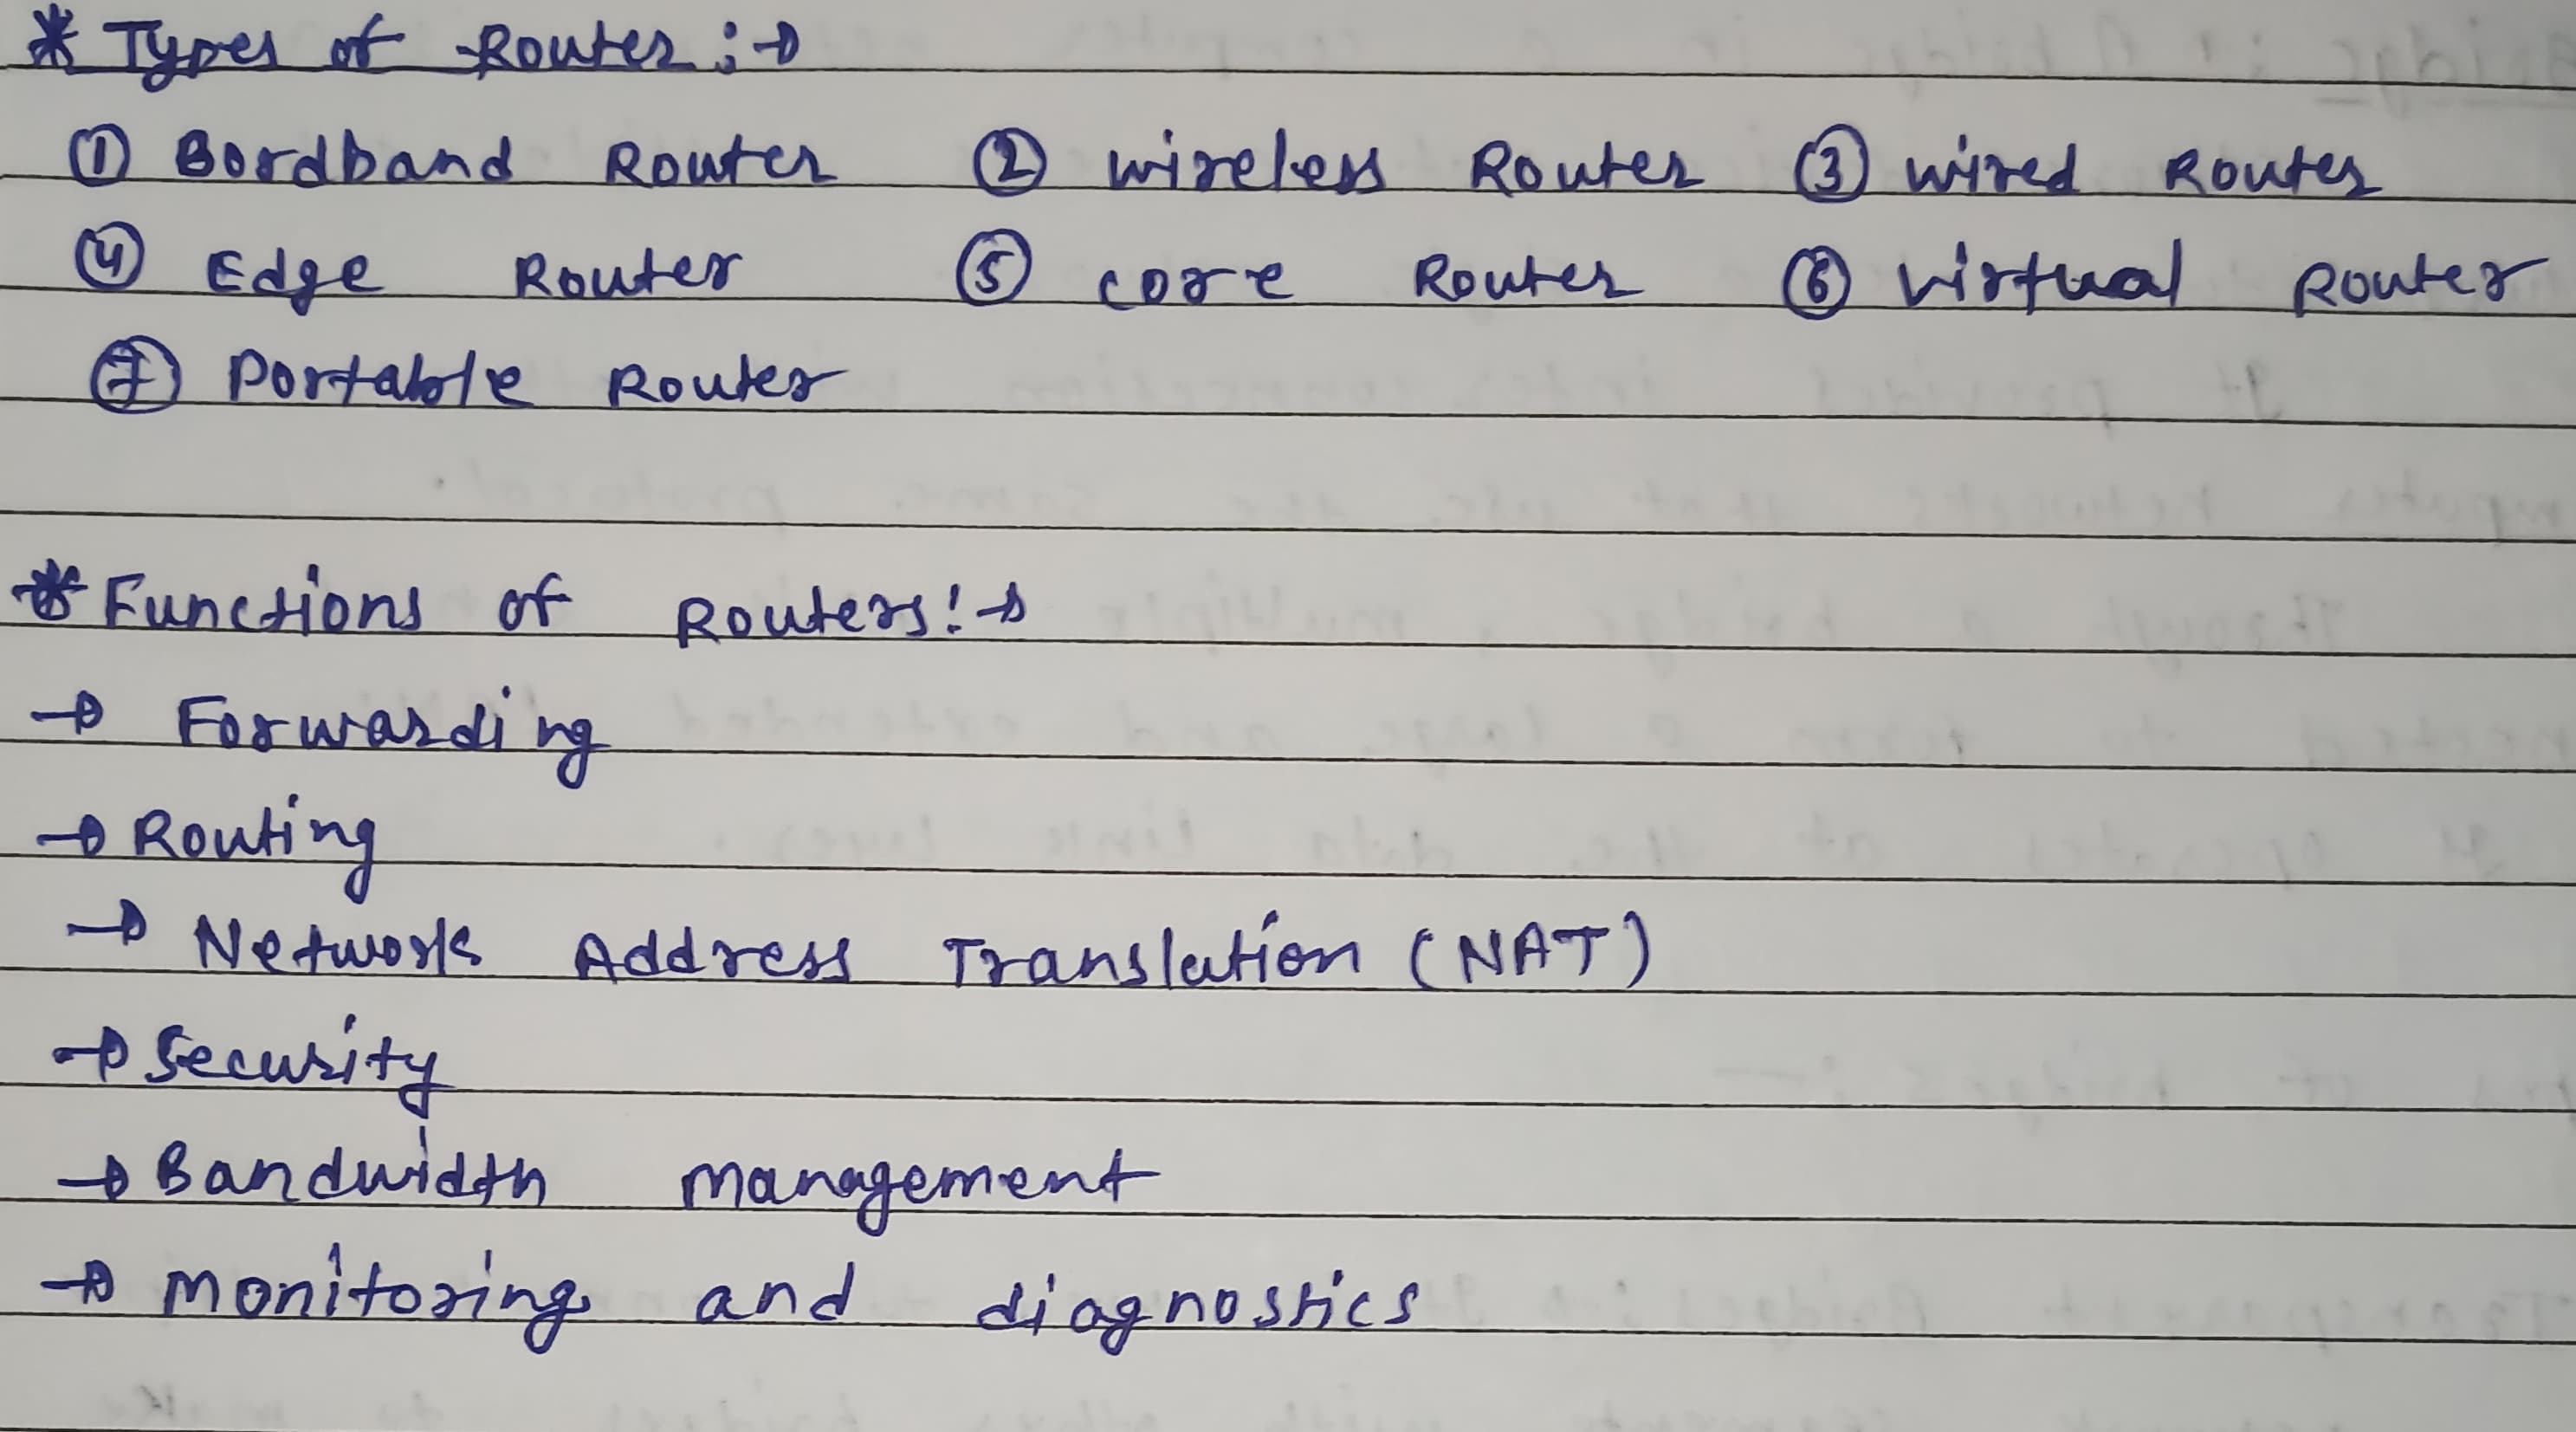 * Types of Router :→
① Bordband Router ② wireless Router ③ wired Router
④ Edge Router ⑤ core Router ⑥ virtual Router
⑦ Portable Router
* Functions of Routers :→
→ Forwarding
→ Routing
→ Network Address Translation (NAT)
→ Security
→ Bandwidth management
→ monitoring and diagnostics